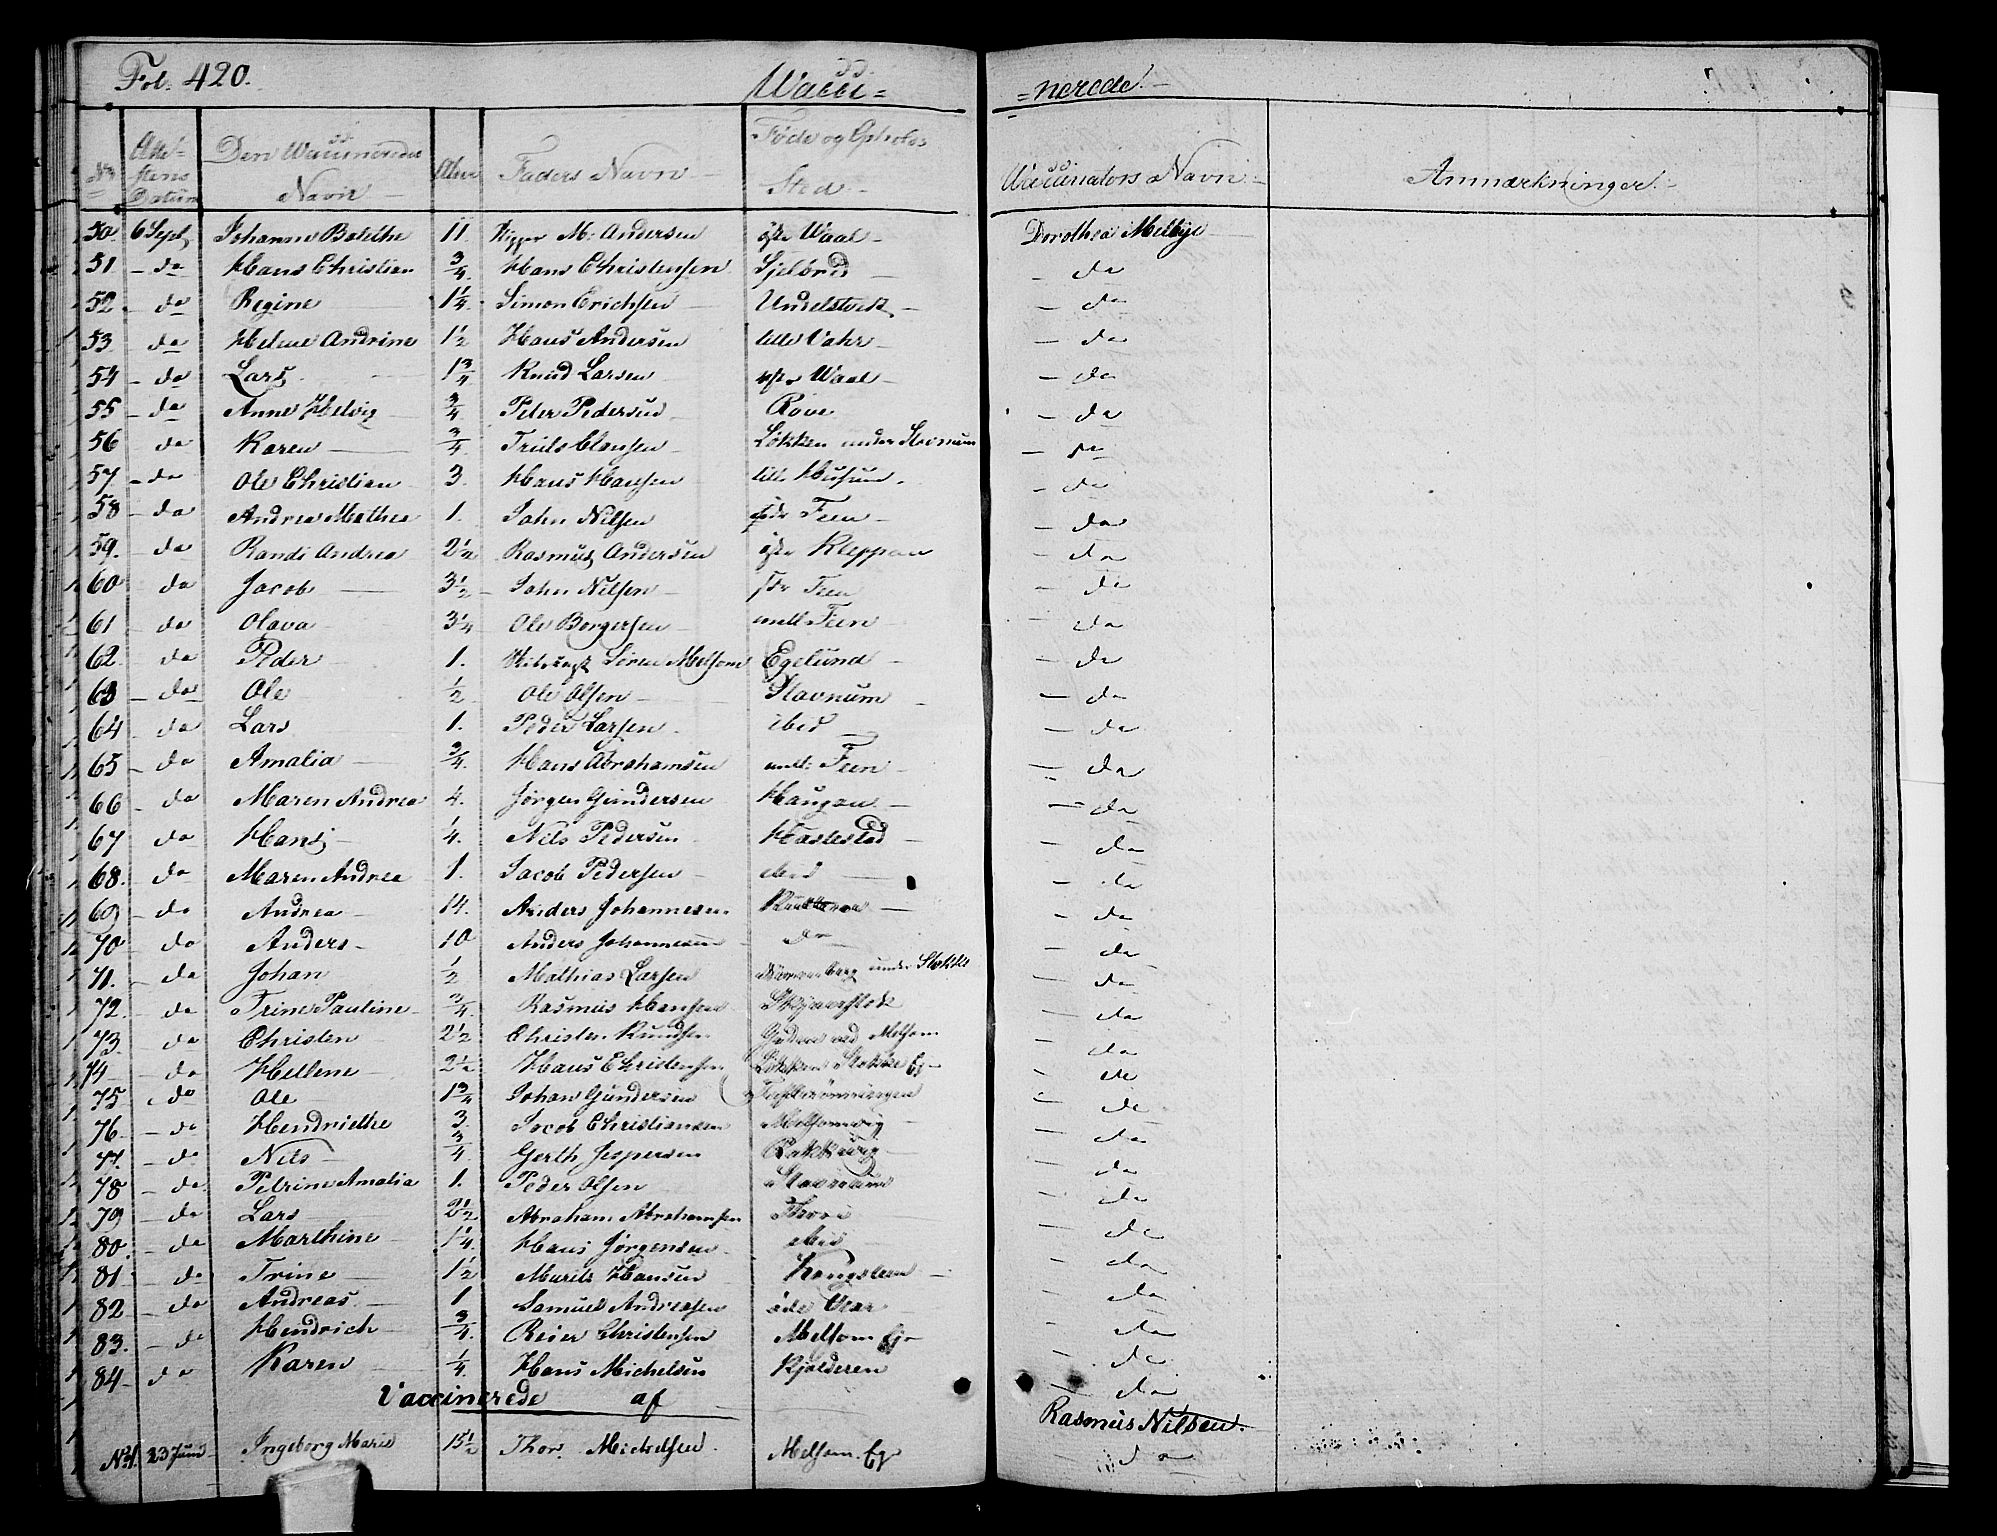 Fol. 420. Wacci= =nerede.
No Atte=stens Datum Den Waccineredes Navn Alder Faders Navn Føde og Opholds Sted Waccinators Navn Anmærkninger.
50. 6 Sept. Johanne Bolethe 11. M: Andersen Waal Dorothea Melbye
51. do Hans Christian 3/4 Hans Christensen do
52. do Regine 1 1/4 Simon Erichsen Undelstvedt do
53 do Helene Andrine 1 1/2 Hans Andersen lille Vahr do
54 do Lars 1 3/4 Knud Larsen Waal do
55 do Anne Helvig 3/4 Peter Pedersen Rove do
56 do Karen 3/4 Truls Clausen Løkken under Stavnum do
57 do Ole Christian 3. Hans Hansen lille Husum do
58 do Andrea Mathea 1. John Nilsen Feen do
59. do Randi Andrea 2 1/2 Rasmus Andersen Kleppan do
60 do Jacob 3 1/2 John Nilsen Feen do
61 do Olava 3 1/4 Ole Borgersen mell Feen do
62. do Peder 1. Søren Melsom Egelund do
63 do Ole 1/2 Ole Olsen Stavnum do
64 do Lars 1. Peder Larsen ibid do
65 do Amalia 3/4 Hans Abrahamsen mell: Feen do
66 do Maren Andrea 4. Jørgen Gundersen Haugan do
67 do Hans 1/4. Nils Pedersen Hastestad do
68. do Maren Andrea 1. Jacob Pedersen ibid do
69 do Andrea 14. Anders Johannesen do
70 do Anders 10 Anders Johannesen do do
71. do Johan 1/2 Mathias Larsen under Stokke do
72. do Trine Pauline 3/4 Rasmus Hansen do
73. do Christen 2 1/2 Christen Knudsen ved Melsom do
74 do Hellene 2 1/2 Hans Christensen Løkken Stokke Ej do
75 do Ole 1 3/4 Johan Gundersen do
76. do Hendriethe 3. Jacob Christiansen Melsomvig do
77. do Nils 3/4 Gerth Jespersen do
78 do Petrine Amalia 1. Peder Olsen Stavnum do
79 do Lars 2 1/2 Abraham Abrahamsen do
80. do Marthine 1 1/4. Hans Jørgensen ibid do
81 do Trine 1 1/2 Hansen do
82 do Andreas 1 Samuel Andreasen do
83. do Hendrich 3/4. Reier Christensen Melsom Ej do
84 do Karen 1/4. Hans Michelsen Kjolderen do
Vaccinerede af Rasmus Nilsen.
No 1. 23 Juni Ingeborg Marie 15 1/2 Thor Michelsen. Melsom Ej do